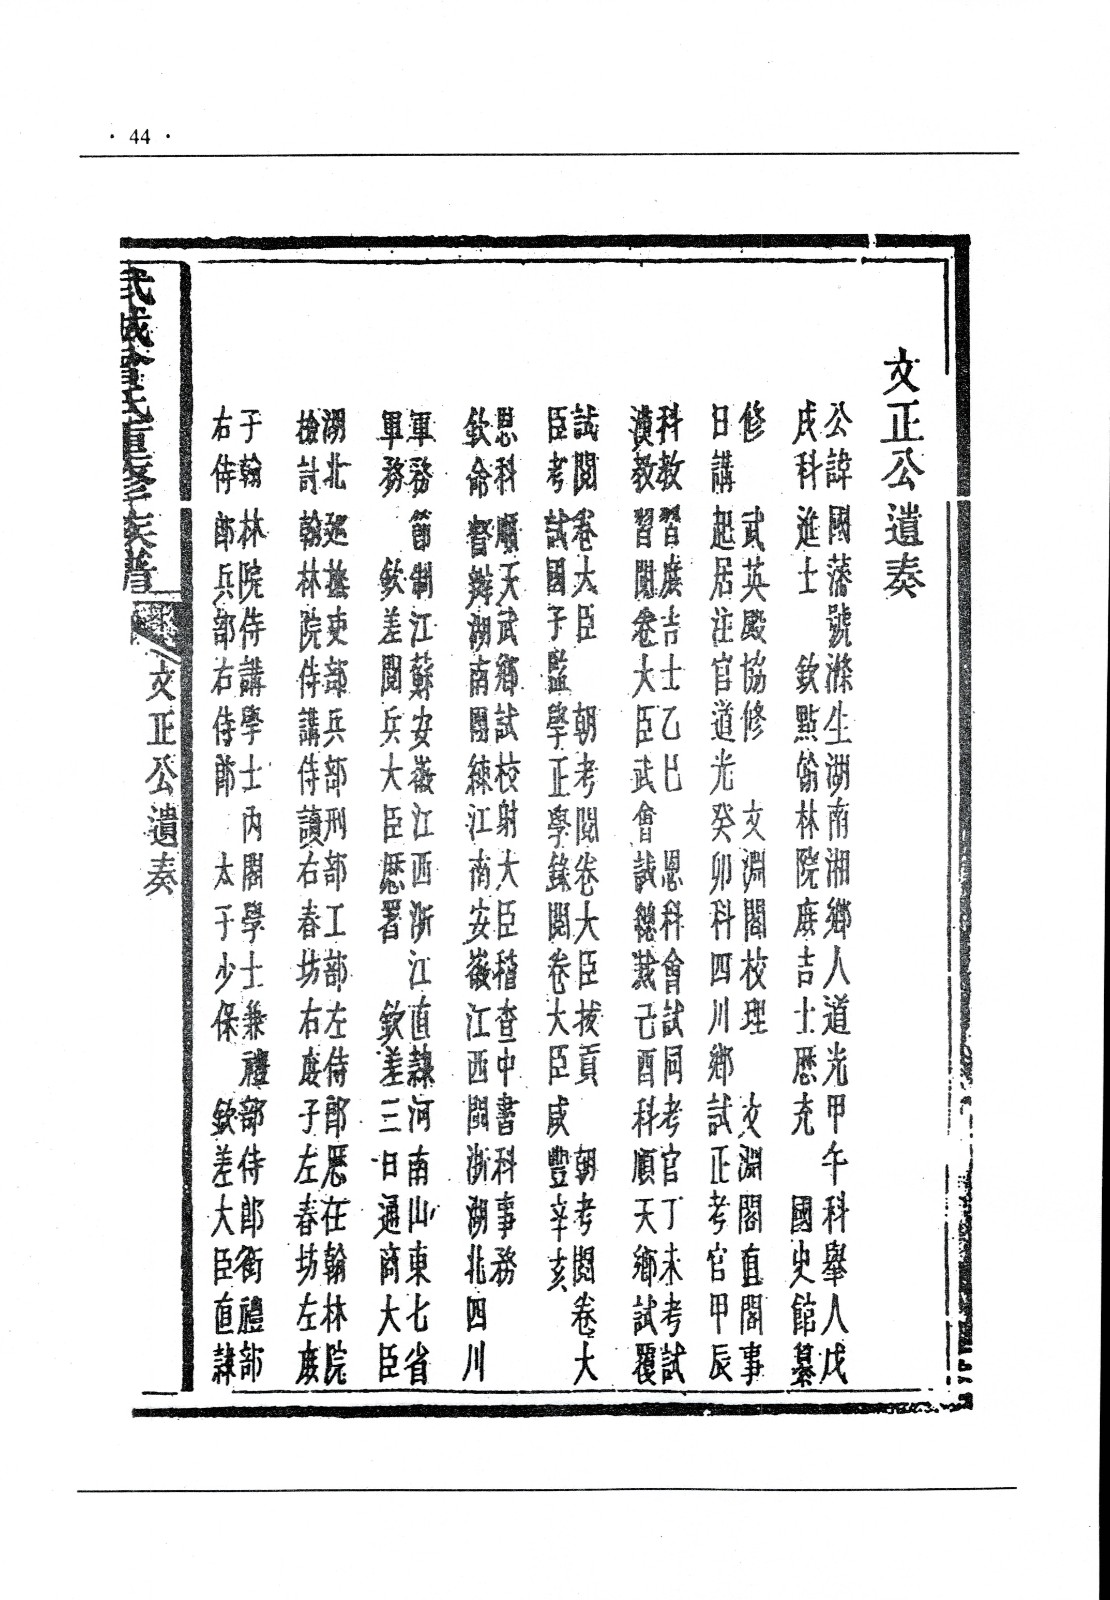 · 44 ·
文正公遺奏
公諱國藩號滌生湖南湘鄉人道光甲午科舉人戊
戌科進士　欽點翰林院庶吉士歷充　國史館纂
修　武英殿協修　文淵閣校理　文淵閣直閣事
日講起居注官道光癸卯科四川鄉試正考官甲辰
科教習庶吉士乙巳　恩科會試同考官丁未考試
漢教習閱卷大臣武會試總裁己酉科順天鄉試覆
試閱卷大臣　朝考閱卷大臣拔貢　朝考閱卷大
臣考試國子監學正學錄閱卷大臣咸豐辛亥
恩科順天武鄉試校射大臣稽查中書科事務
欽命督辦湖南團練江南安徽江西閩浙湖北四川
軍務節制江蘇安徽江西浙江直隸河南山東七省
軍務　欽差閱兵大臣歷署　欽差三口通商大臣
湖北巡撫吏部兵部刑部工部左侍郎歷在翰林院
檢討翰林院侍講侍讀右春坊右庶子左春坊左庶
子翰林院侍講學士內閣學士兼禮部侍郎銜禮部
右侍郎兵部右侍郎　太子少保　欽差大臣直隸
武城曾氏重修族譜
文正公遺奏